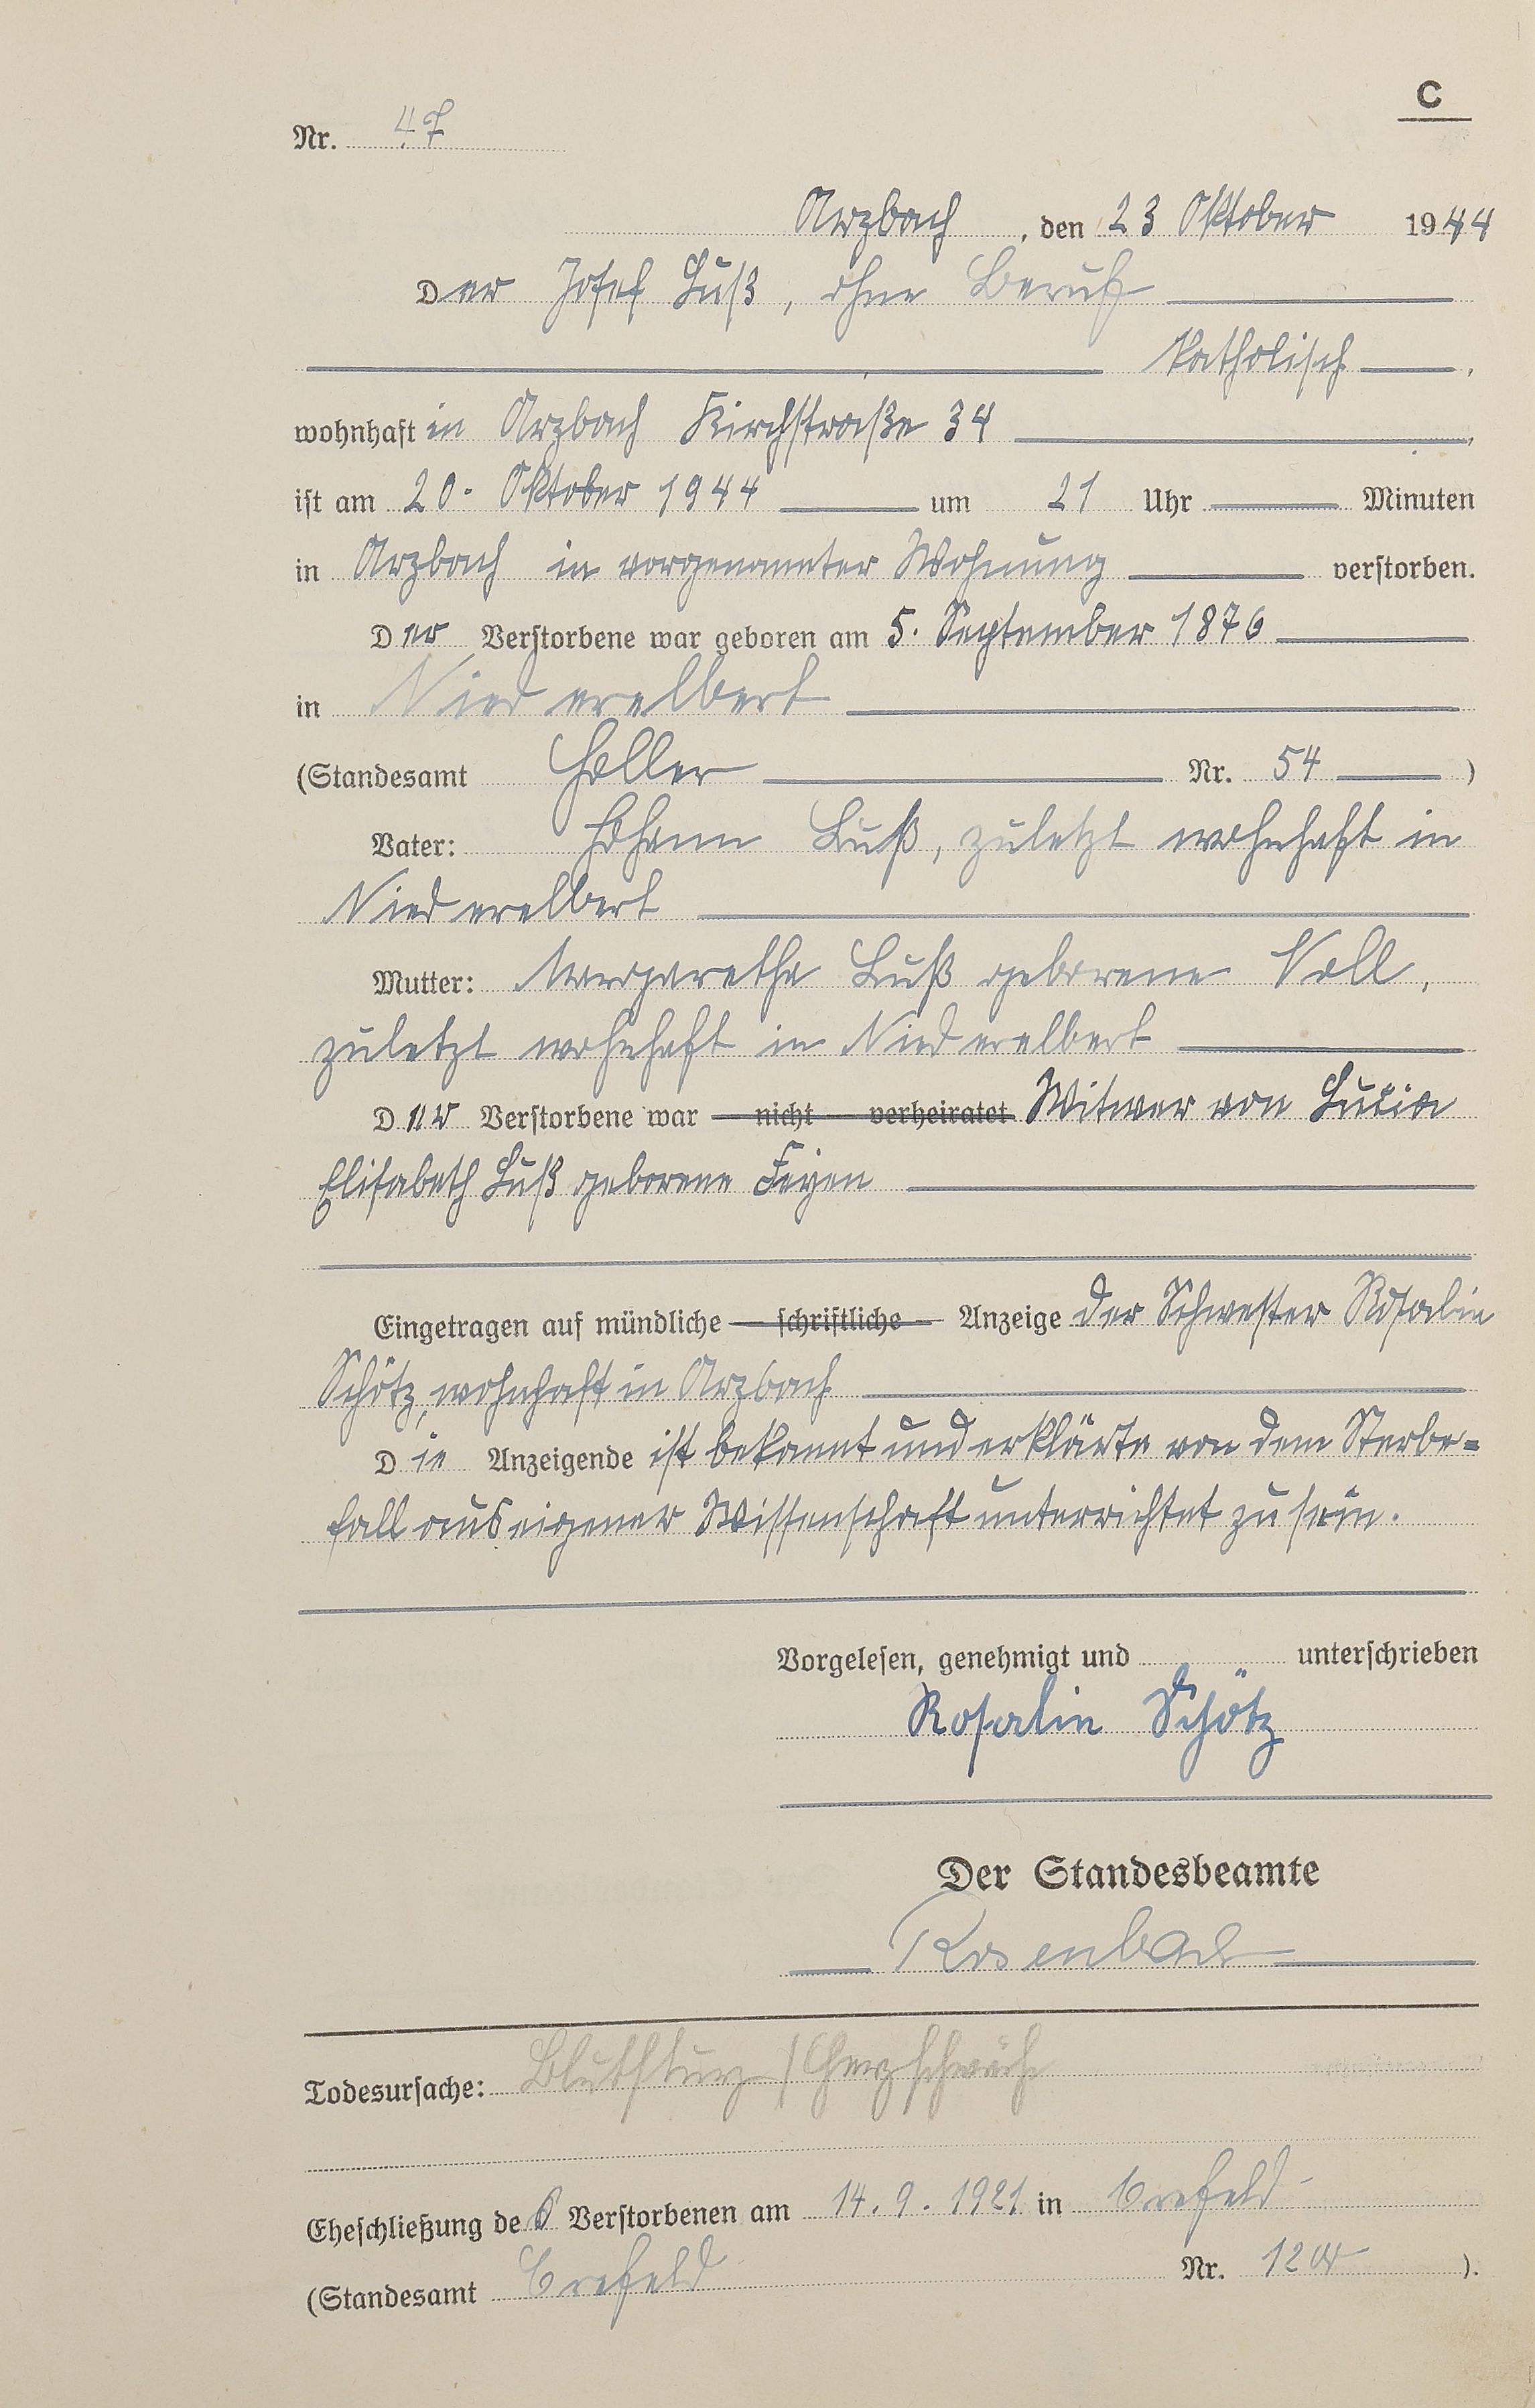 C
Nr. 47
Arzbach, den 23 Oktober 1944
Der Josef Luß, ohne Beruf
katholisch,
wohnhaft in Arzbach Kirchstraße 34,
ist am 20. Oktober 1944 um 21 Uhr Minuten
in Arzbach in vorgenannter Wohnung verstorben.
Der Verstorbene war geboren am 5. September 1876
in Niederelbert
(Standesamt Holler Nr. 54)
Vater: Johann Luß, zuletzt wohnhaft in
Niederelbert
Mutter: Margaretha Luß geborene Noll,
zuletzt wohnhaft in Niederelbert
Der Verstorbene war nicht verheiratet Witwer von Lucia
Elisabeth Luß geborene Feyen
Eingetragen auf mündliche schriftliche Anzeige der Schwester Rosalin
Schötz, wohnhaft in Arzbach
Die Anzeigende ist bekannt und erklärte von dem Sterbe=
fall aus eigener Wissenschaft unterrichtet zu sein.
Vorgelesen, genehmigt und unterschrieben
Rosalin Schötz
Der Standesbeamte
Rosenbach
Todesursache: Blutsturz / Herzschwäche
Eheschließung des Verstorbenen am 14. 9. 1921 in Crefeld
(Standesamt Crefeld Nr. ).